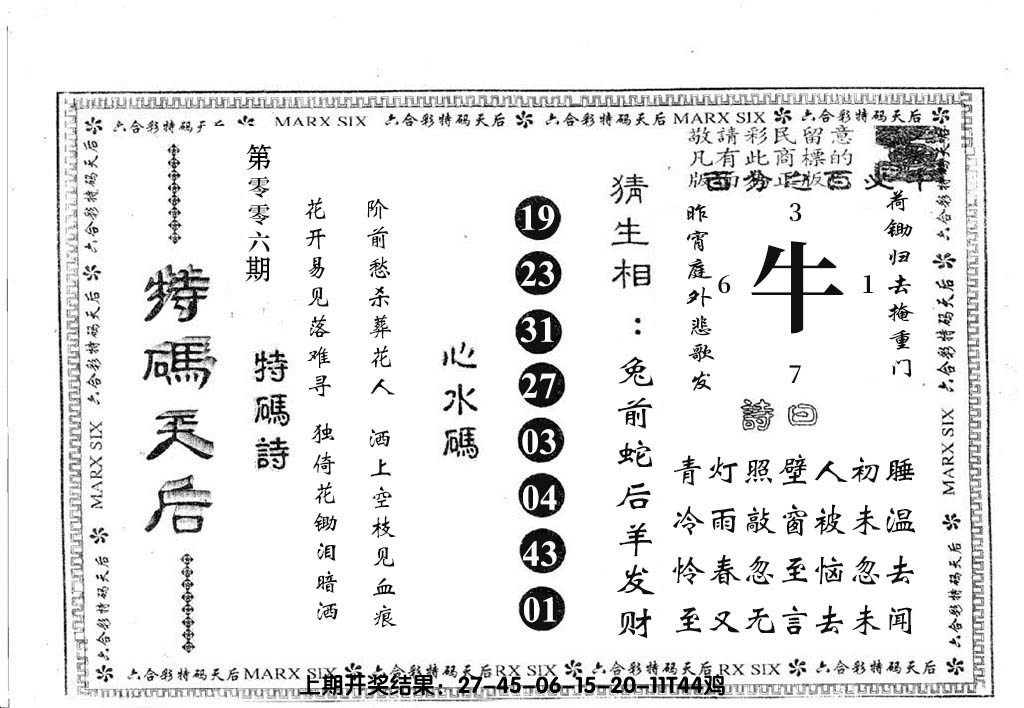 六合彩特码天后
MARX SIX
六合彩特码天后
六合彩特码天后
MARX SIX
六合彩特码天后
敬請彩民留意
凡有此商標的
特碼天后
第零零六期
特碼詩
花开易见落难寻 独倚花锄泪暗洒
阶前愁杀葬花人 洒上空枝见血痕
心水碼
19
23
31
27
03
04
43
01
猜生相：兔前蛇后羊发财
昨宵庭外悲歌发
3
6
牛
1
7
荷锄归去掩重门
詩曰
青灯照壁人初睡
冷雨敲窗被未温
怜春忽至恼忽去
至又无言去未闻
六合彩特码天后
MARX SIX
六合彩特码天后
MARX SIX
六合彩特码天后
六合彩特码天后
MARX SIX
六合彩特码天后
六合彩特码天后
MARX SIX
六合彩特码天后
RX SIX
六合彩特码天后
RX SIX
六合彩特码天后
上期开奖结果：27-45-06-15-20-11T44鸡